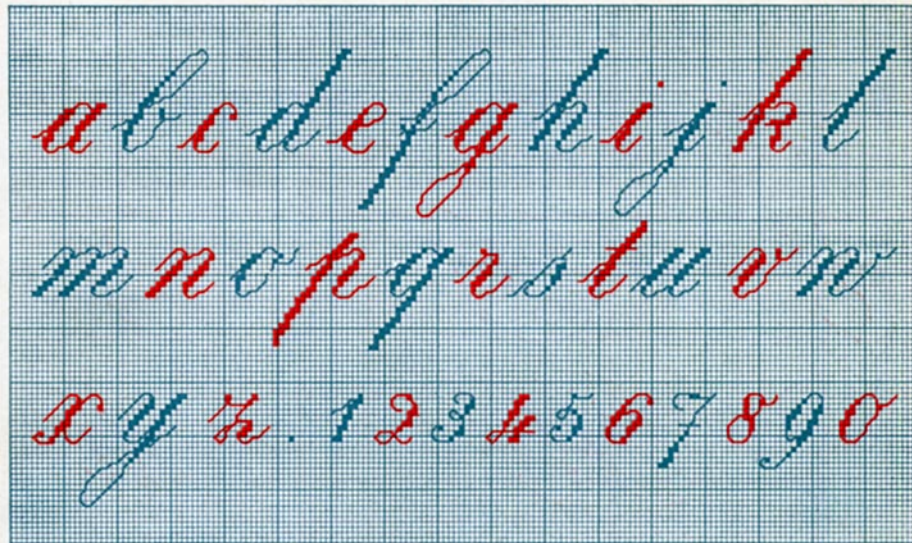 a b c d e f g h i j k l
m n o p q r s t u v w
x y z . 1 2 3 4 5 6 7 8 9 0